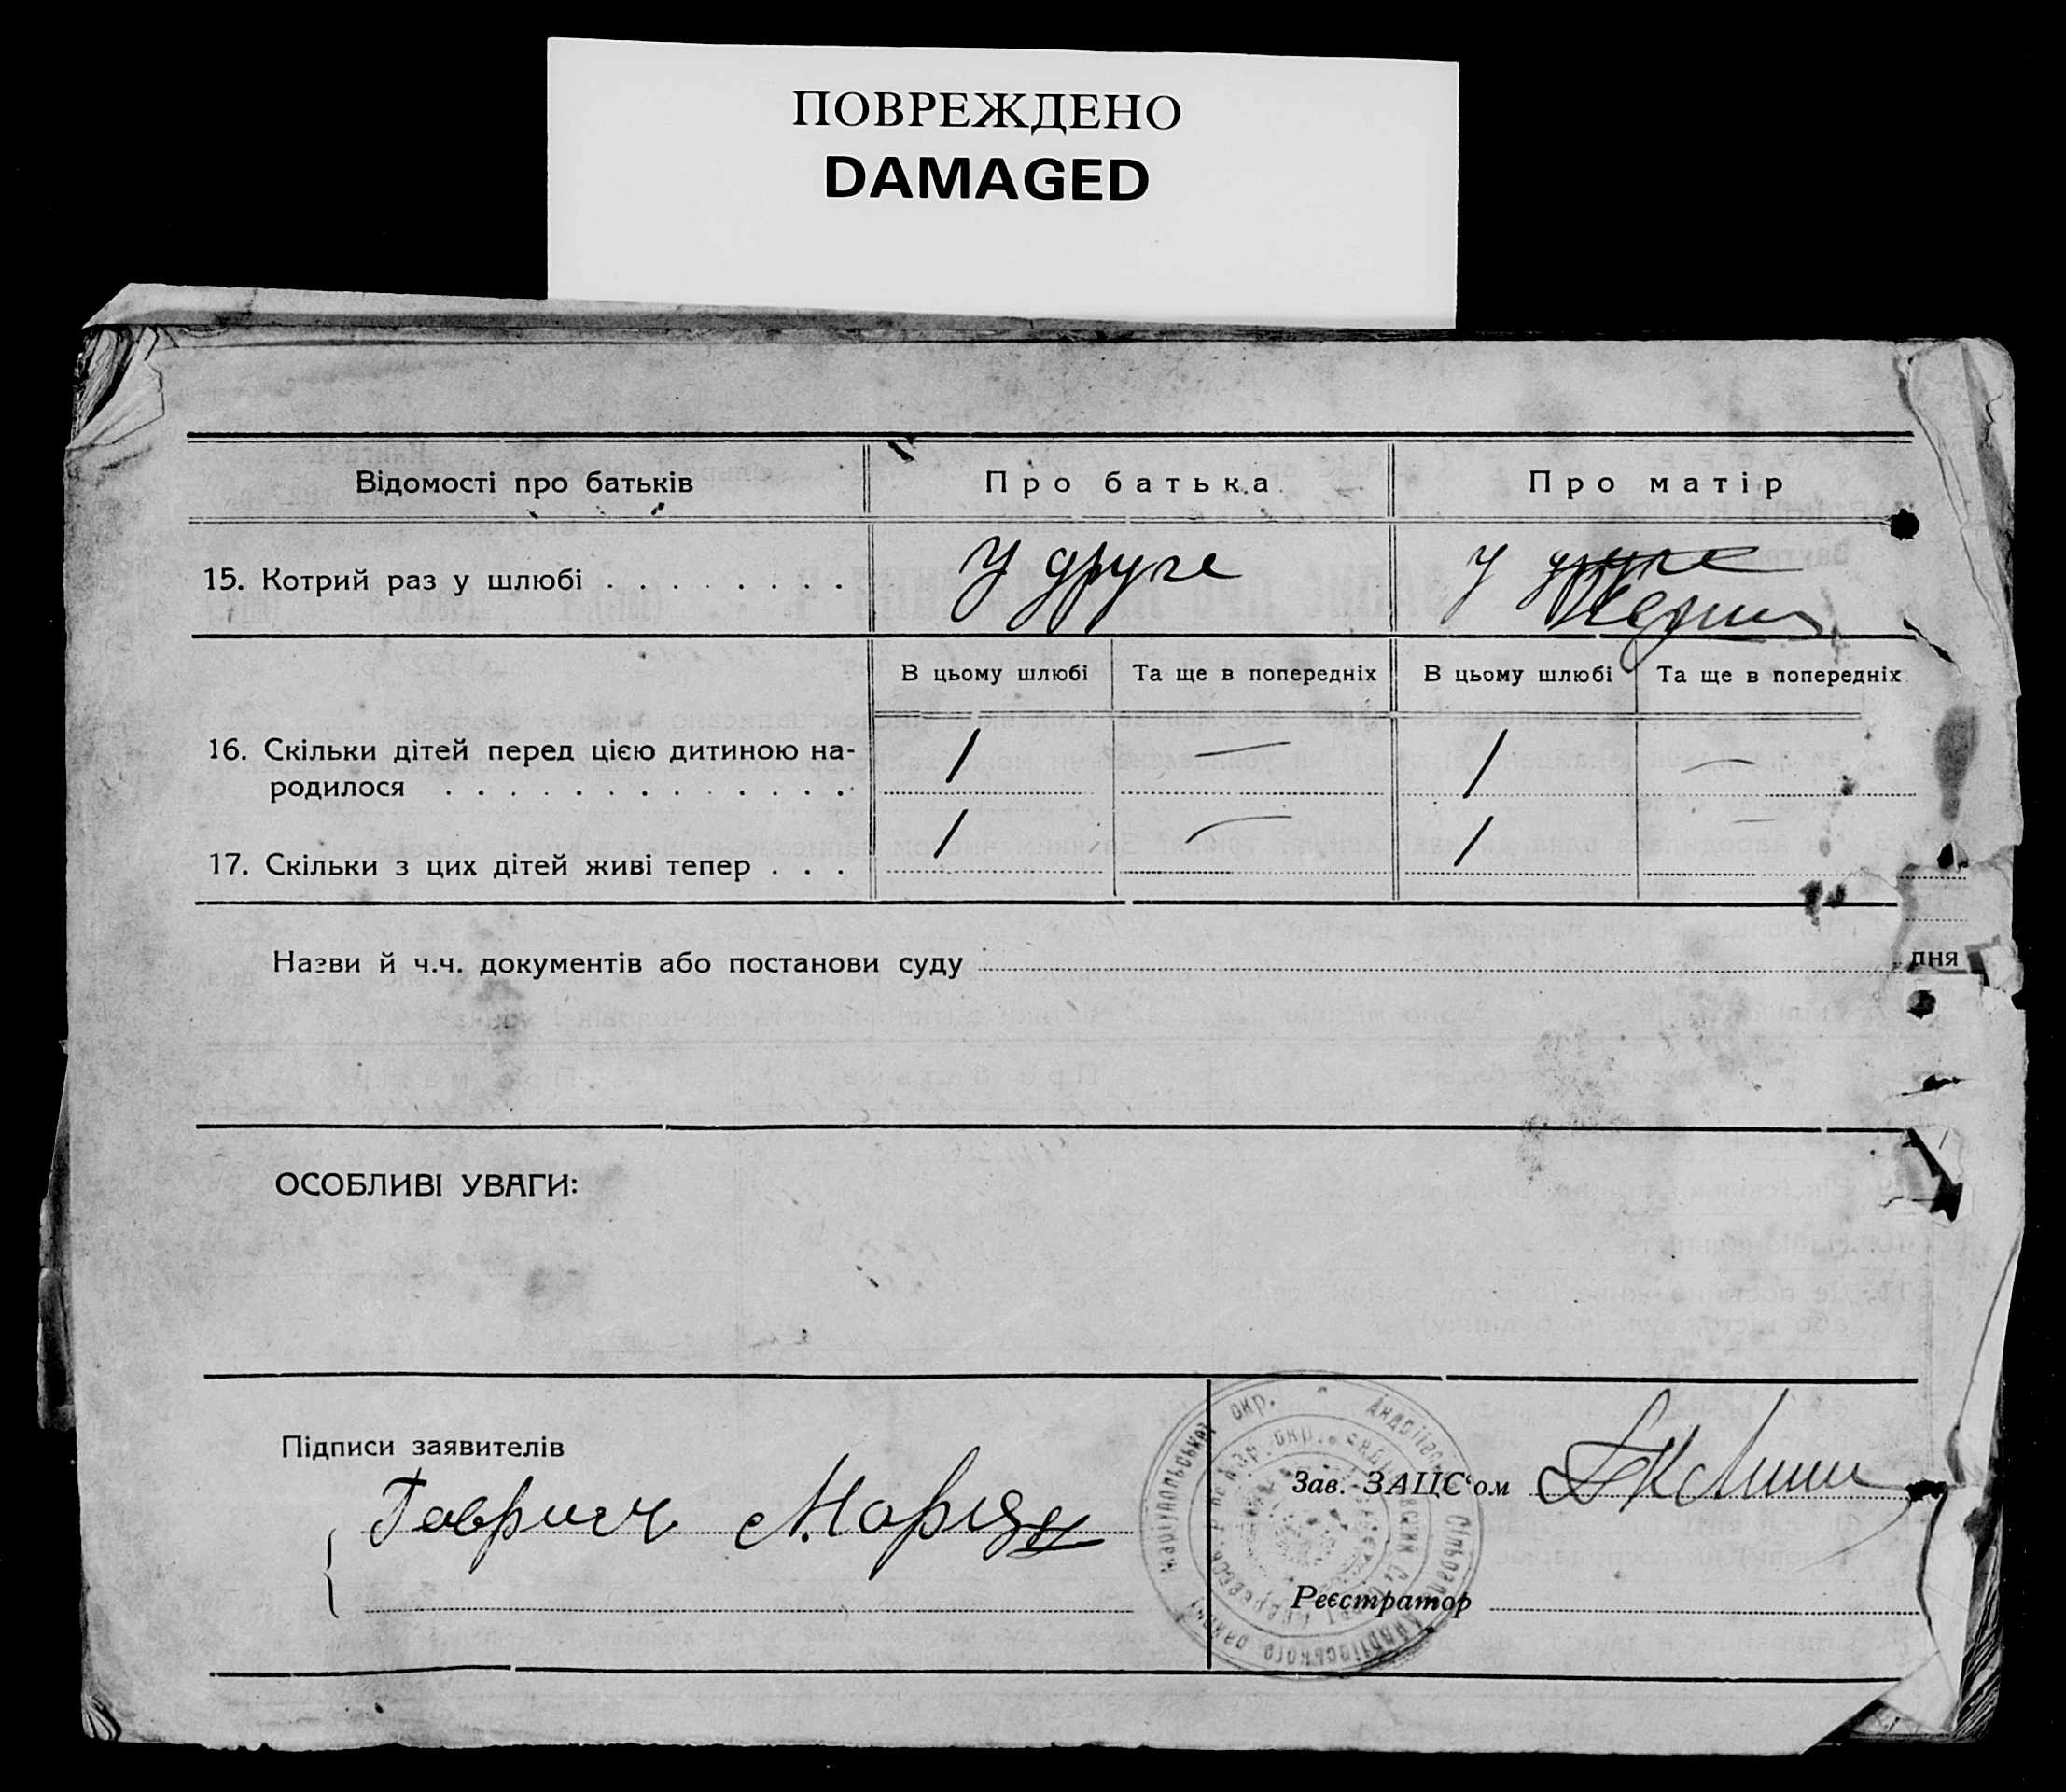 ПОВРЕЖДЕНО
DAMAGED
Відомості про батьків
Про батька
Про матір
15. Котрий раз у шлюбі . . . . . . . .
У друге
У друге
В цьому шлюбі
Та ще в попередніх
В цьому шлюбі
Та ще в попередніх
16. Скільки дітей перед цією дитиною на-
родилося . . . . . . . . . . . . .
1
—
1
—
17. Скільки з цих дітей живі тепер . . .
1
—
1
—
Назви й ч.ч. документів або постанови суду
дня
ОСОБЛИВІ УВАГИ:
Підписи заявителів
Зав. ЗАЦС'ом
Реєстратор
Маріупольської окр.